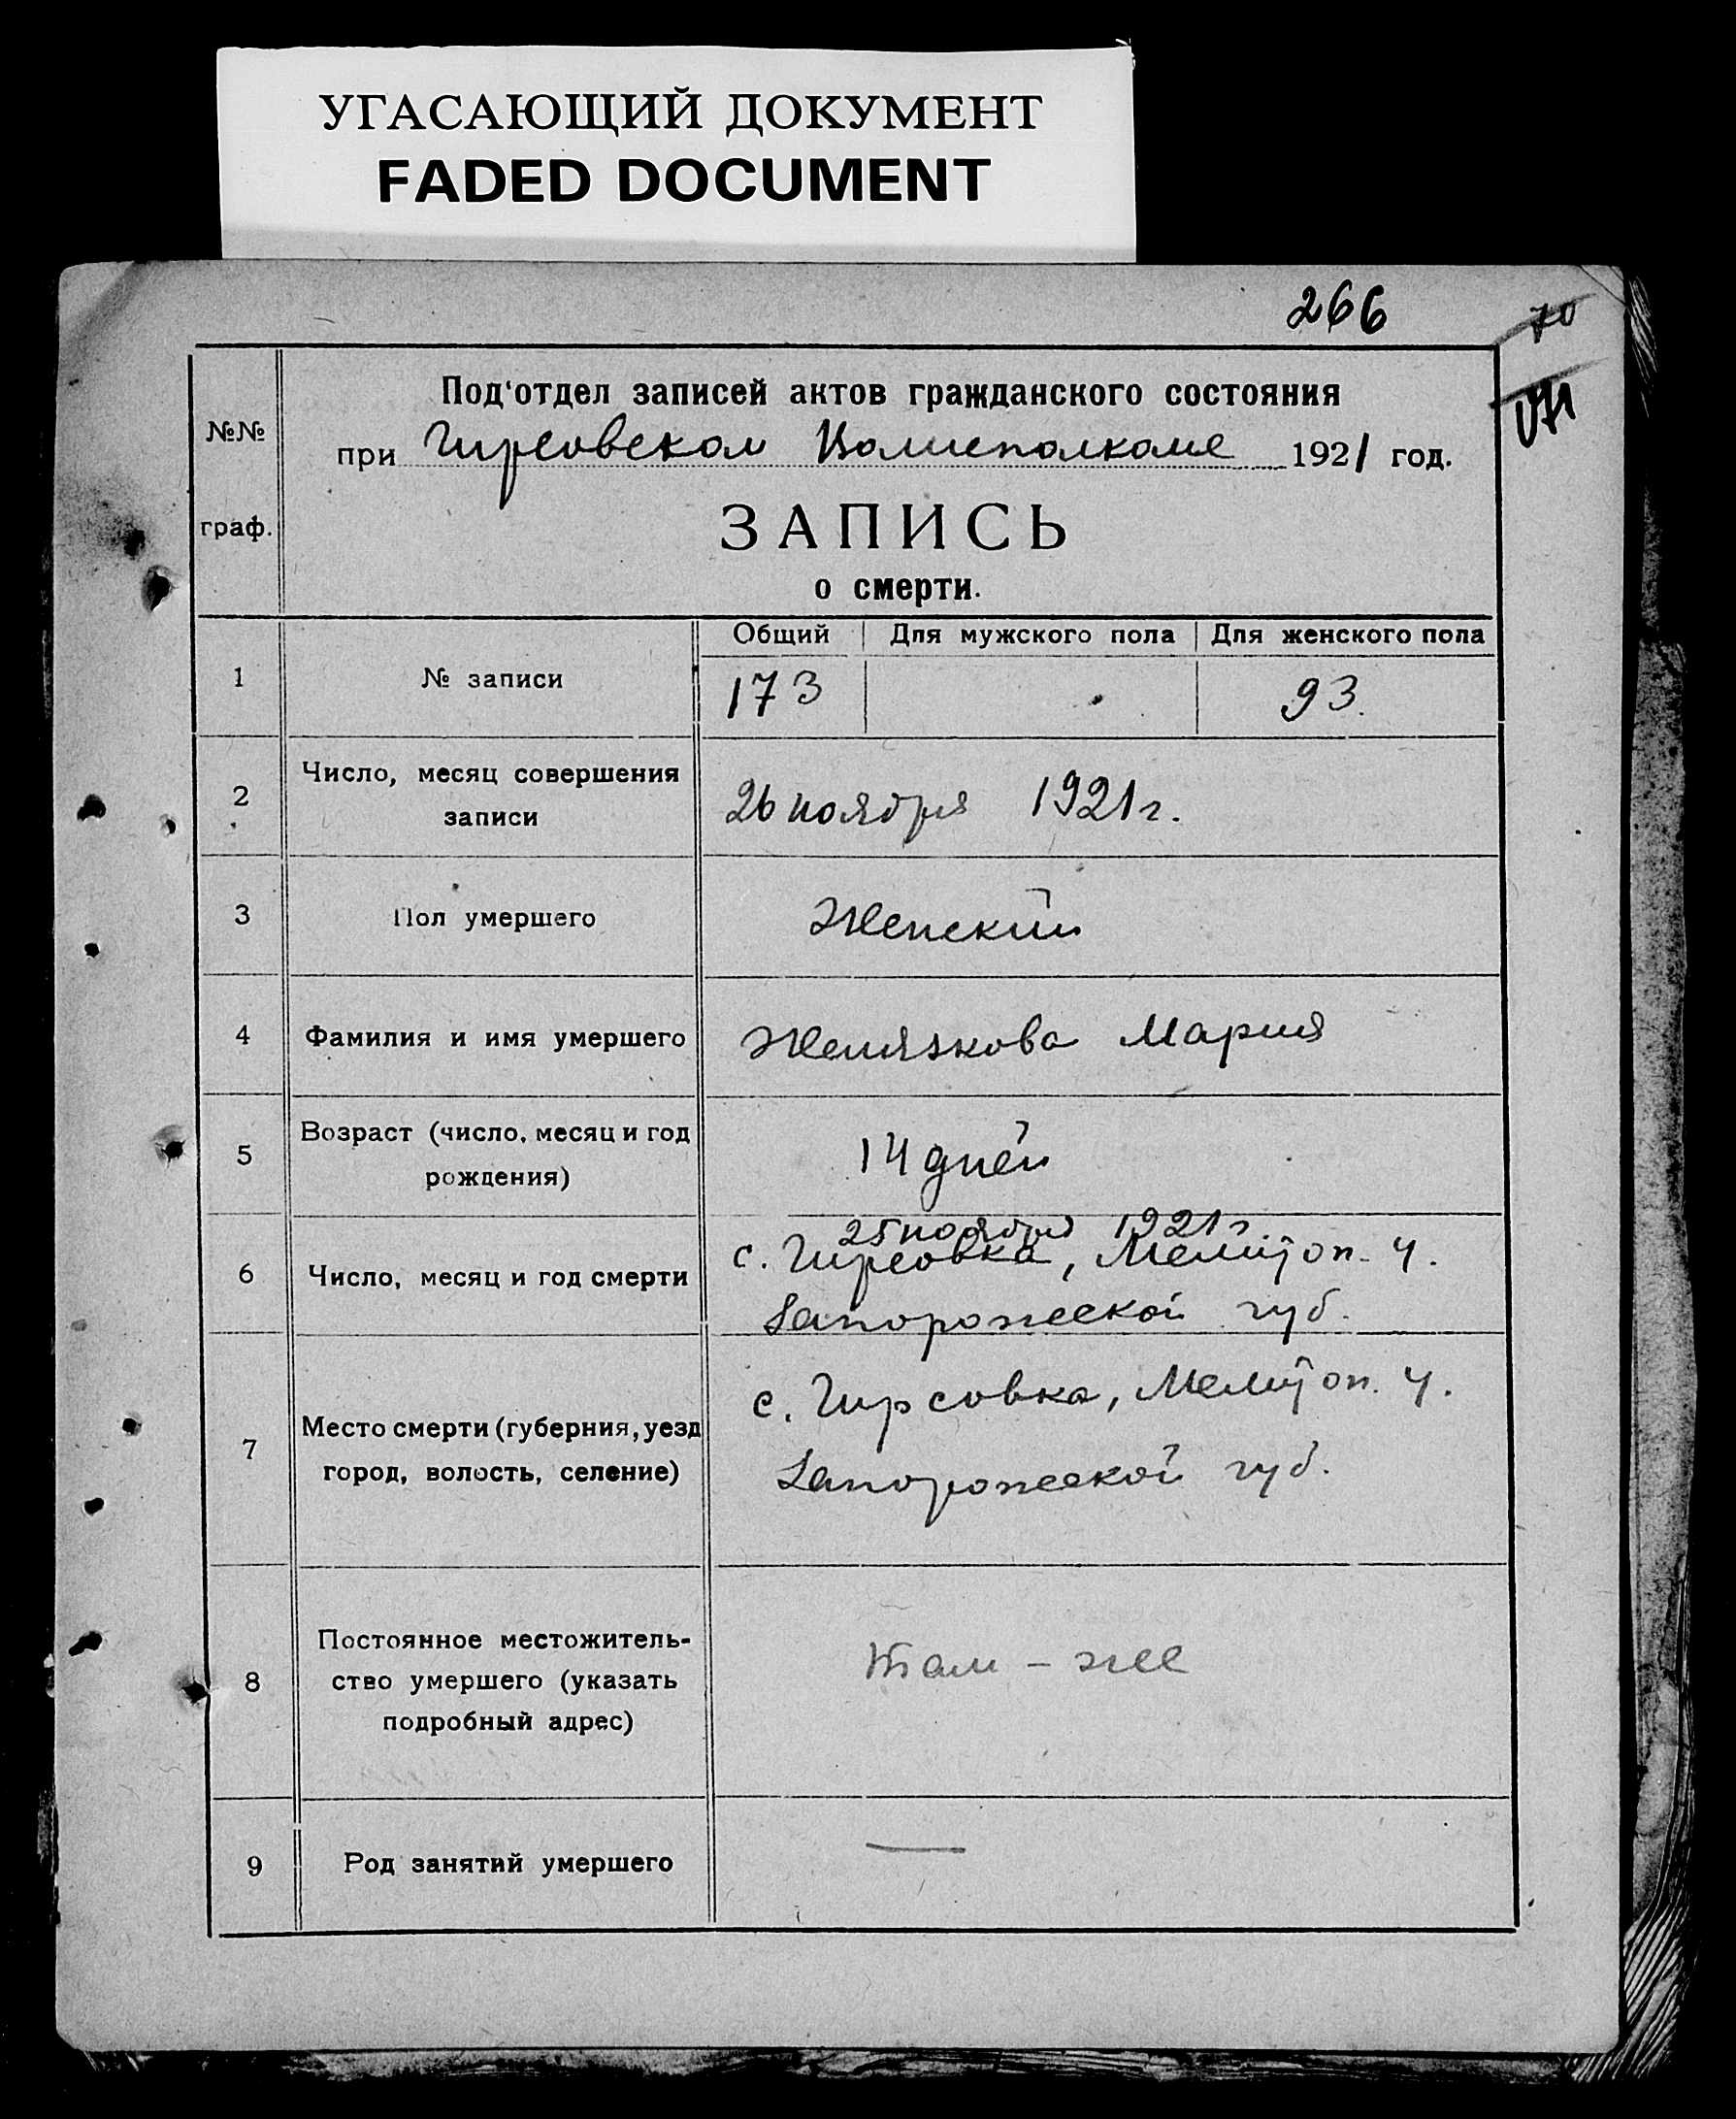 УГАСАЮЩИЙ ДОКУМЕНТ
FADED DOCUMENT
266
70
№№
граф.
Под‘отдел записей актов гражданского состояния
при Гирсовском Волисполкоме 1921 год.
ЗАПИСЬ
о смерти.
Общий Для мужского пола Для женского пола
1 № записи 173 93.
2 Число, месяц совершения
записи
26 ноября 1921 г.
3 Пол умершего Женский
4 Фамилия и имя умершего Желязкова Мария
5 Возраст (число, месяц и год
рождения)
14 дней
25 ноября 1921 г.
6 Число, месяц и год смерти с. Гирсовка, Мелитоп. у.
Запорожской губ.
7 Место смерти (губерния, уезд
город, волость, селение)
с. Гирсовка, Мелитоп. у.
Запорожской губ.
8 Постоянное местожитель-
ство умершего (указать
подробный адрес)
Там - же
9 Род занятий умершего —